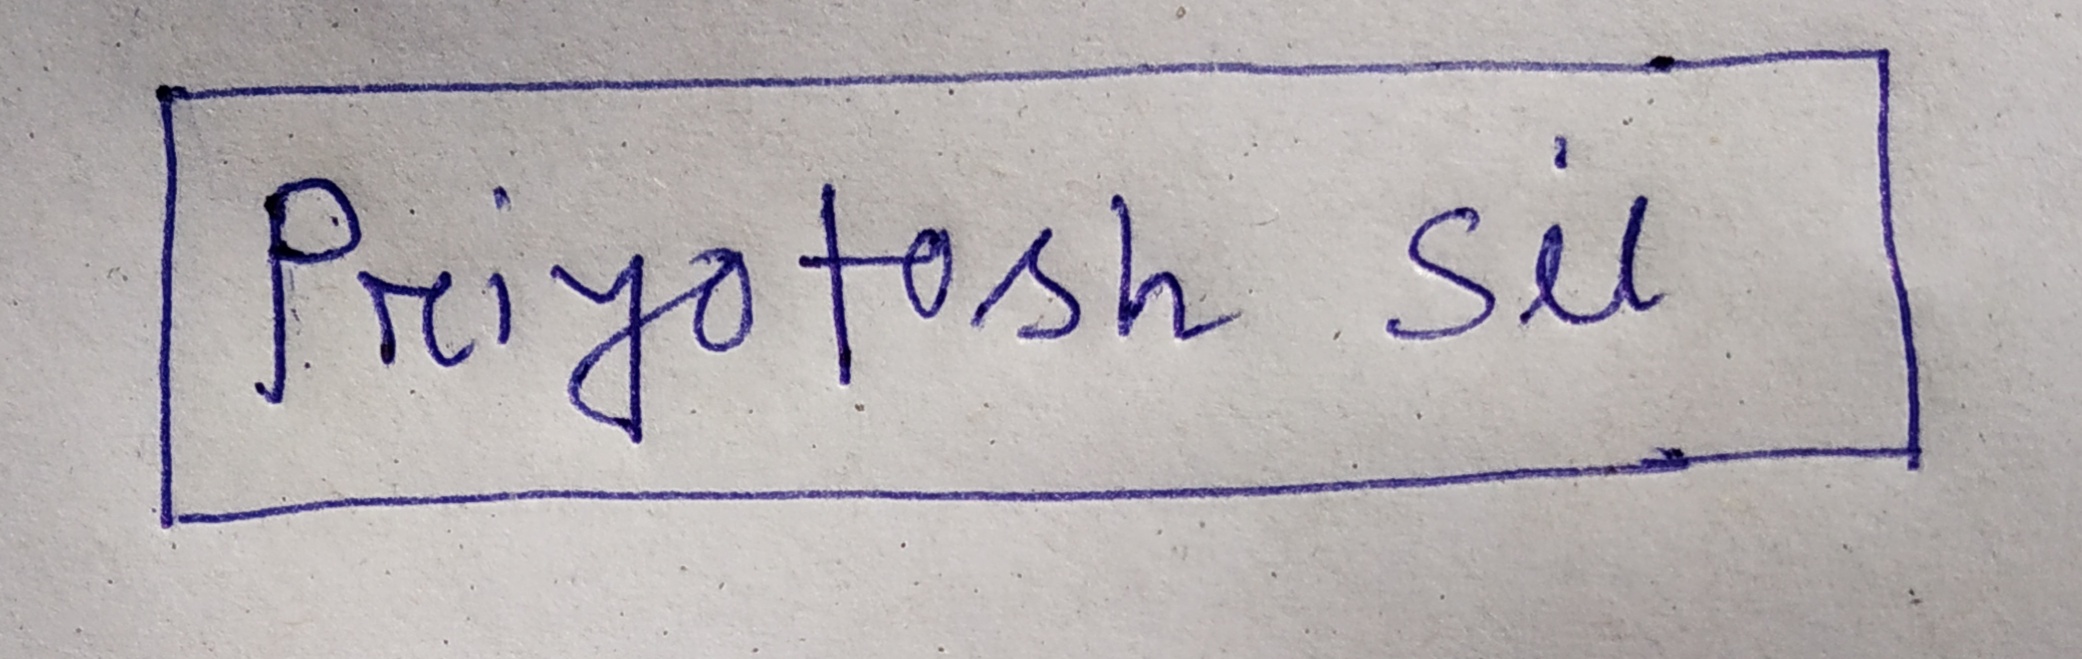 Priyotosh Sil